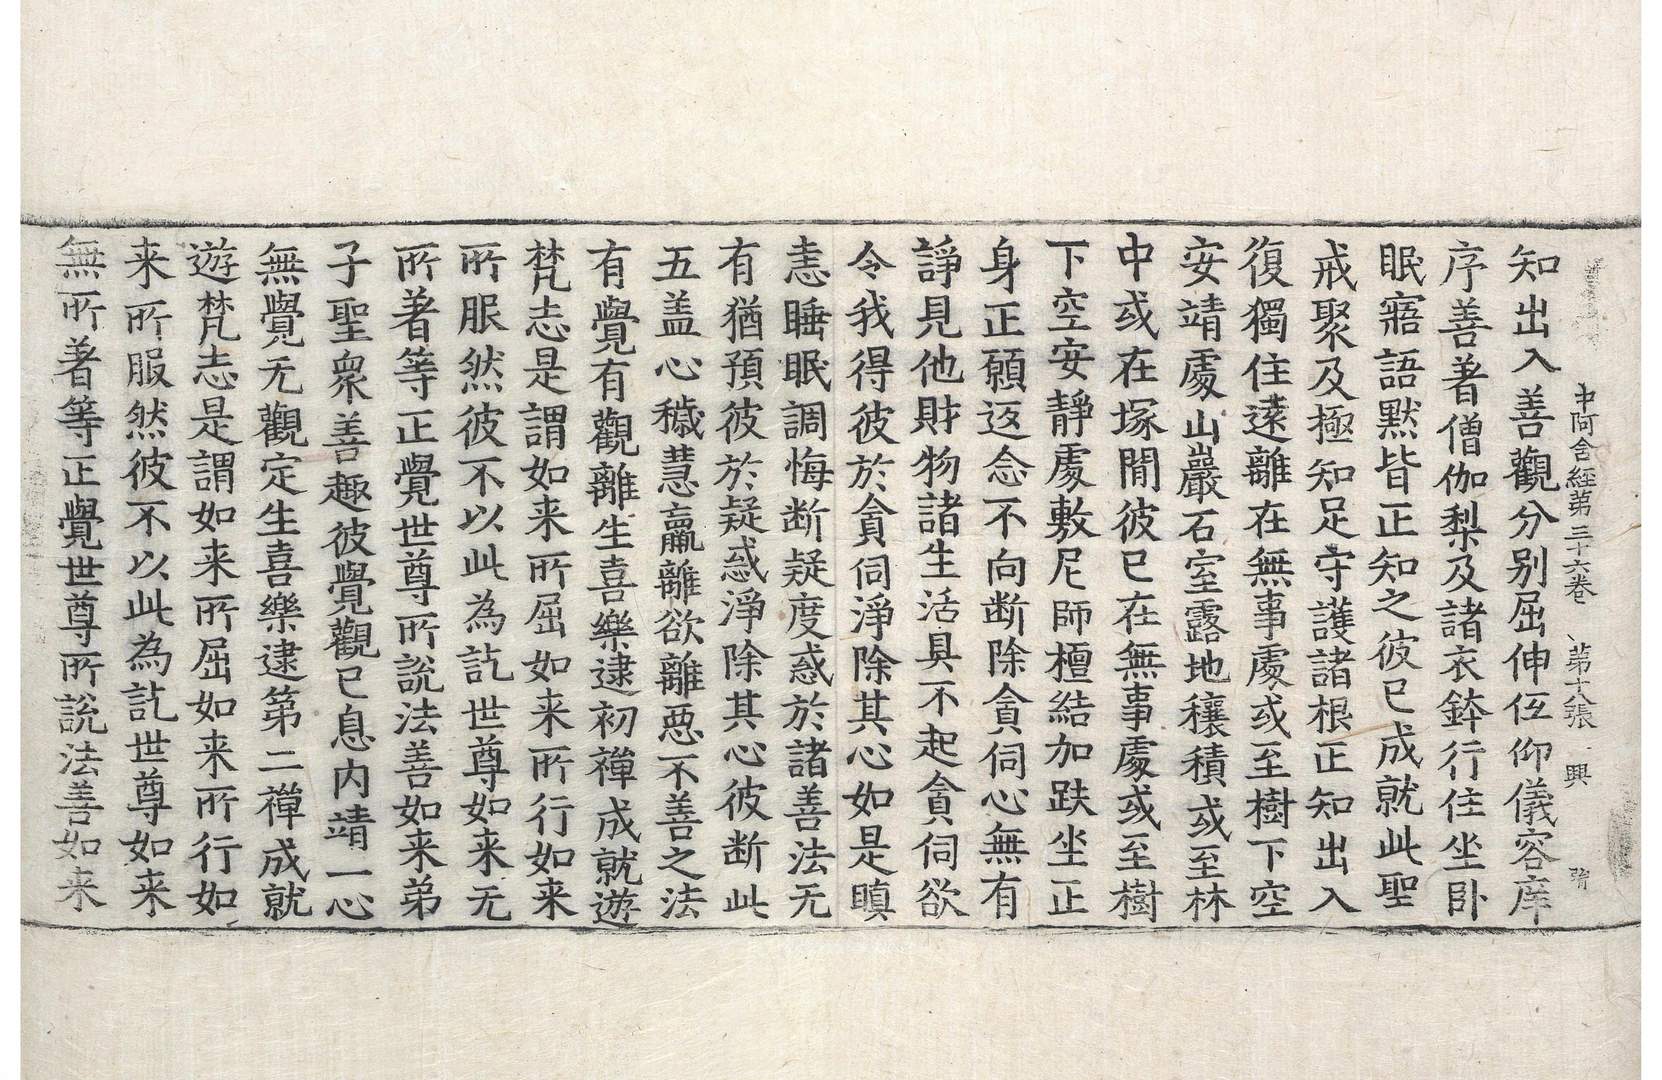 中阿含經第三十六卷　第十八張　興
知出入善觀分別屈伸伍仰儀容庠
序善著僧伽梨及諸衣鉢行住坐卧
眠寤語默皆正知之彼已成就此聖
戒聚及極知足守護諸根正知出入
復獨住遠離在無事處或至樹下空
安靖處山巖石室露地穰積或至林
中或在塚間彼已在無事處或至樹
下空安靜處敷尼師檀結加趺坐正
身正願返念不向斷除貪伺心無有
諍見他財物諸生活具不起貪伺欲
令我得彼於貪伺淨除其心如是瞋
恚睡眠調悔断疑度惑於諸善法无
有猶預彼於疑惑淨除其心彼断此
五盖心穢慧羸離欲離惡不善之法
有覺有觀離生喜樂逮初禪成就遊
梵志是謂如来所屈如来所行如来
所服然彼不以此為訖世尊如来无
所著等正覺世尊所說法善如来弟
子聖衆善趣彼覺觀已息内靖一心
無覺无觀定生喜樂逮第二禪成就
遊梵志是謂如来所屈如来所行如
来所服然彼不以此為訖世尊如来
無所著等正覺世尊所說法善如来